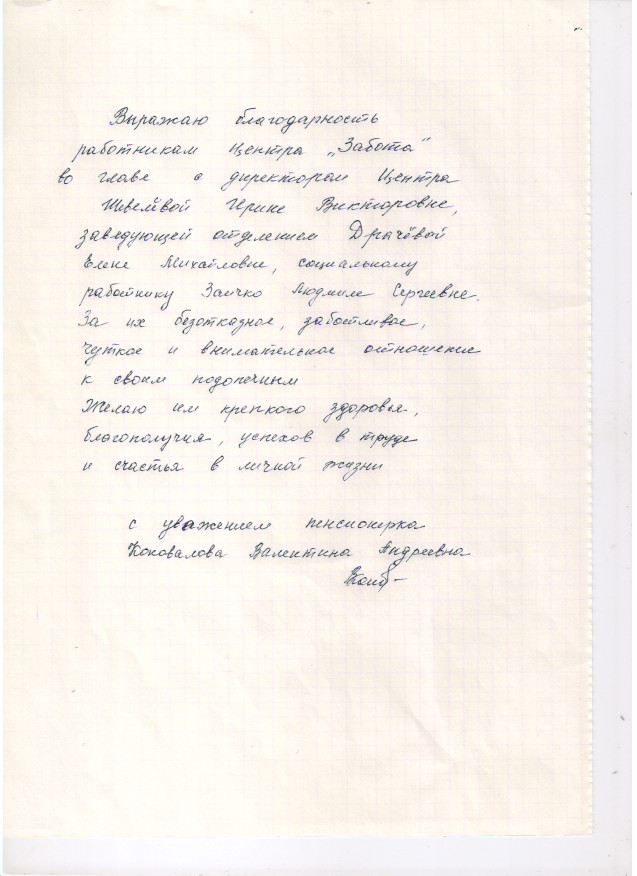 Выражаю благодарность
работникам Центра „Забота"
во главе с директором Центра
Шевелёвой Ирине Викторовне,
заведующей отделением Драчёвой
Елене Михайловне, социальному
работнику Заичко Людмиле Сергеевне.
За их безотказное, заботливое,
чуткое и внимательное отношение
к своим подопечным
Желаю им крепкого здоровья,
благополучия, успехов в труде
и счастья в личной жизни
с уважением пенсионерка
Коновалова Валентина Андреевна